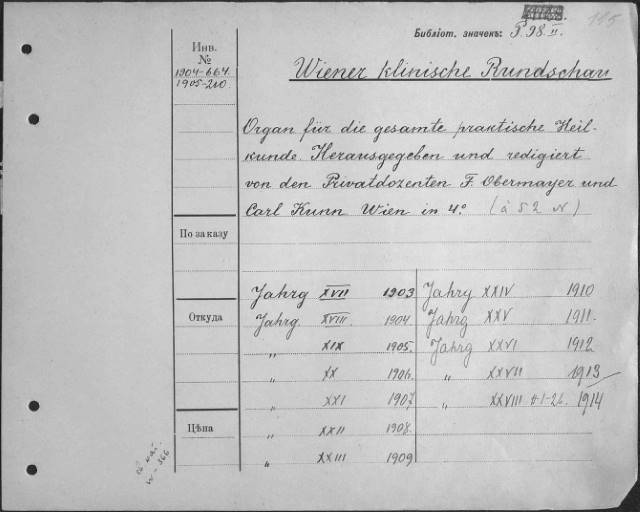 115
Библіот. значекъ: 5.98 II.
Инв.
№
1904-664.
1905-210.
Wiener klinische Rundschau
Organ für die gesamte praktische Heil-
kunde. Herausgegeben und redigiert
von den Privatdozenten F. Obermayer und
Carl Kunn Wien in 4°. (à 52 N)
По заказу
Откуда
Цѣна
Jahrg XVII 1903
Jahrg. XVIII. 1904
„ XIX 1905.
„ XX 1906.
„ XXI 1907.
„ XXII 1908.
„ XXIII 1909
Jahrg XXIV 1910
Jahrg XXV 1911.
Jahrg XXVI 1912
„ XXVII 1913
„ XXVIII #1-26. 1914